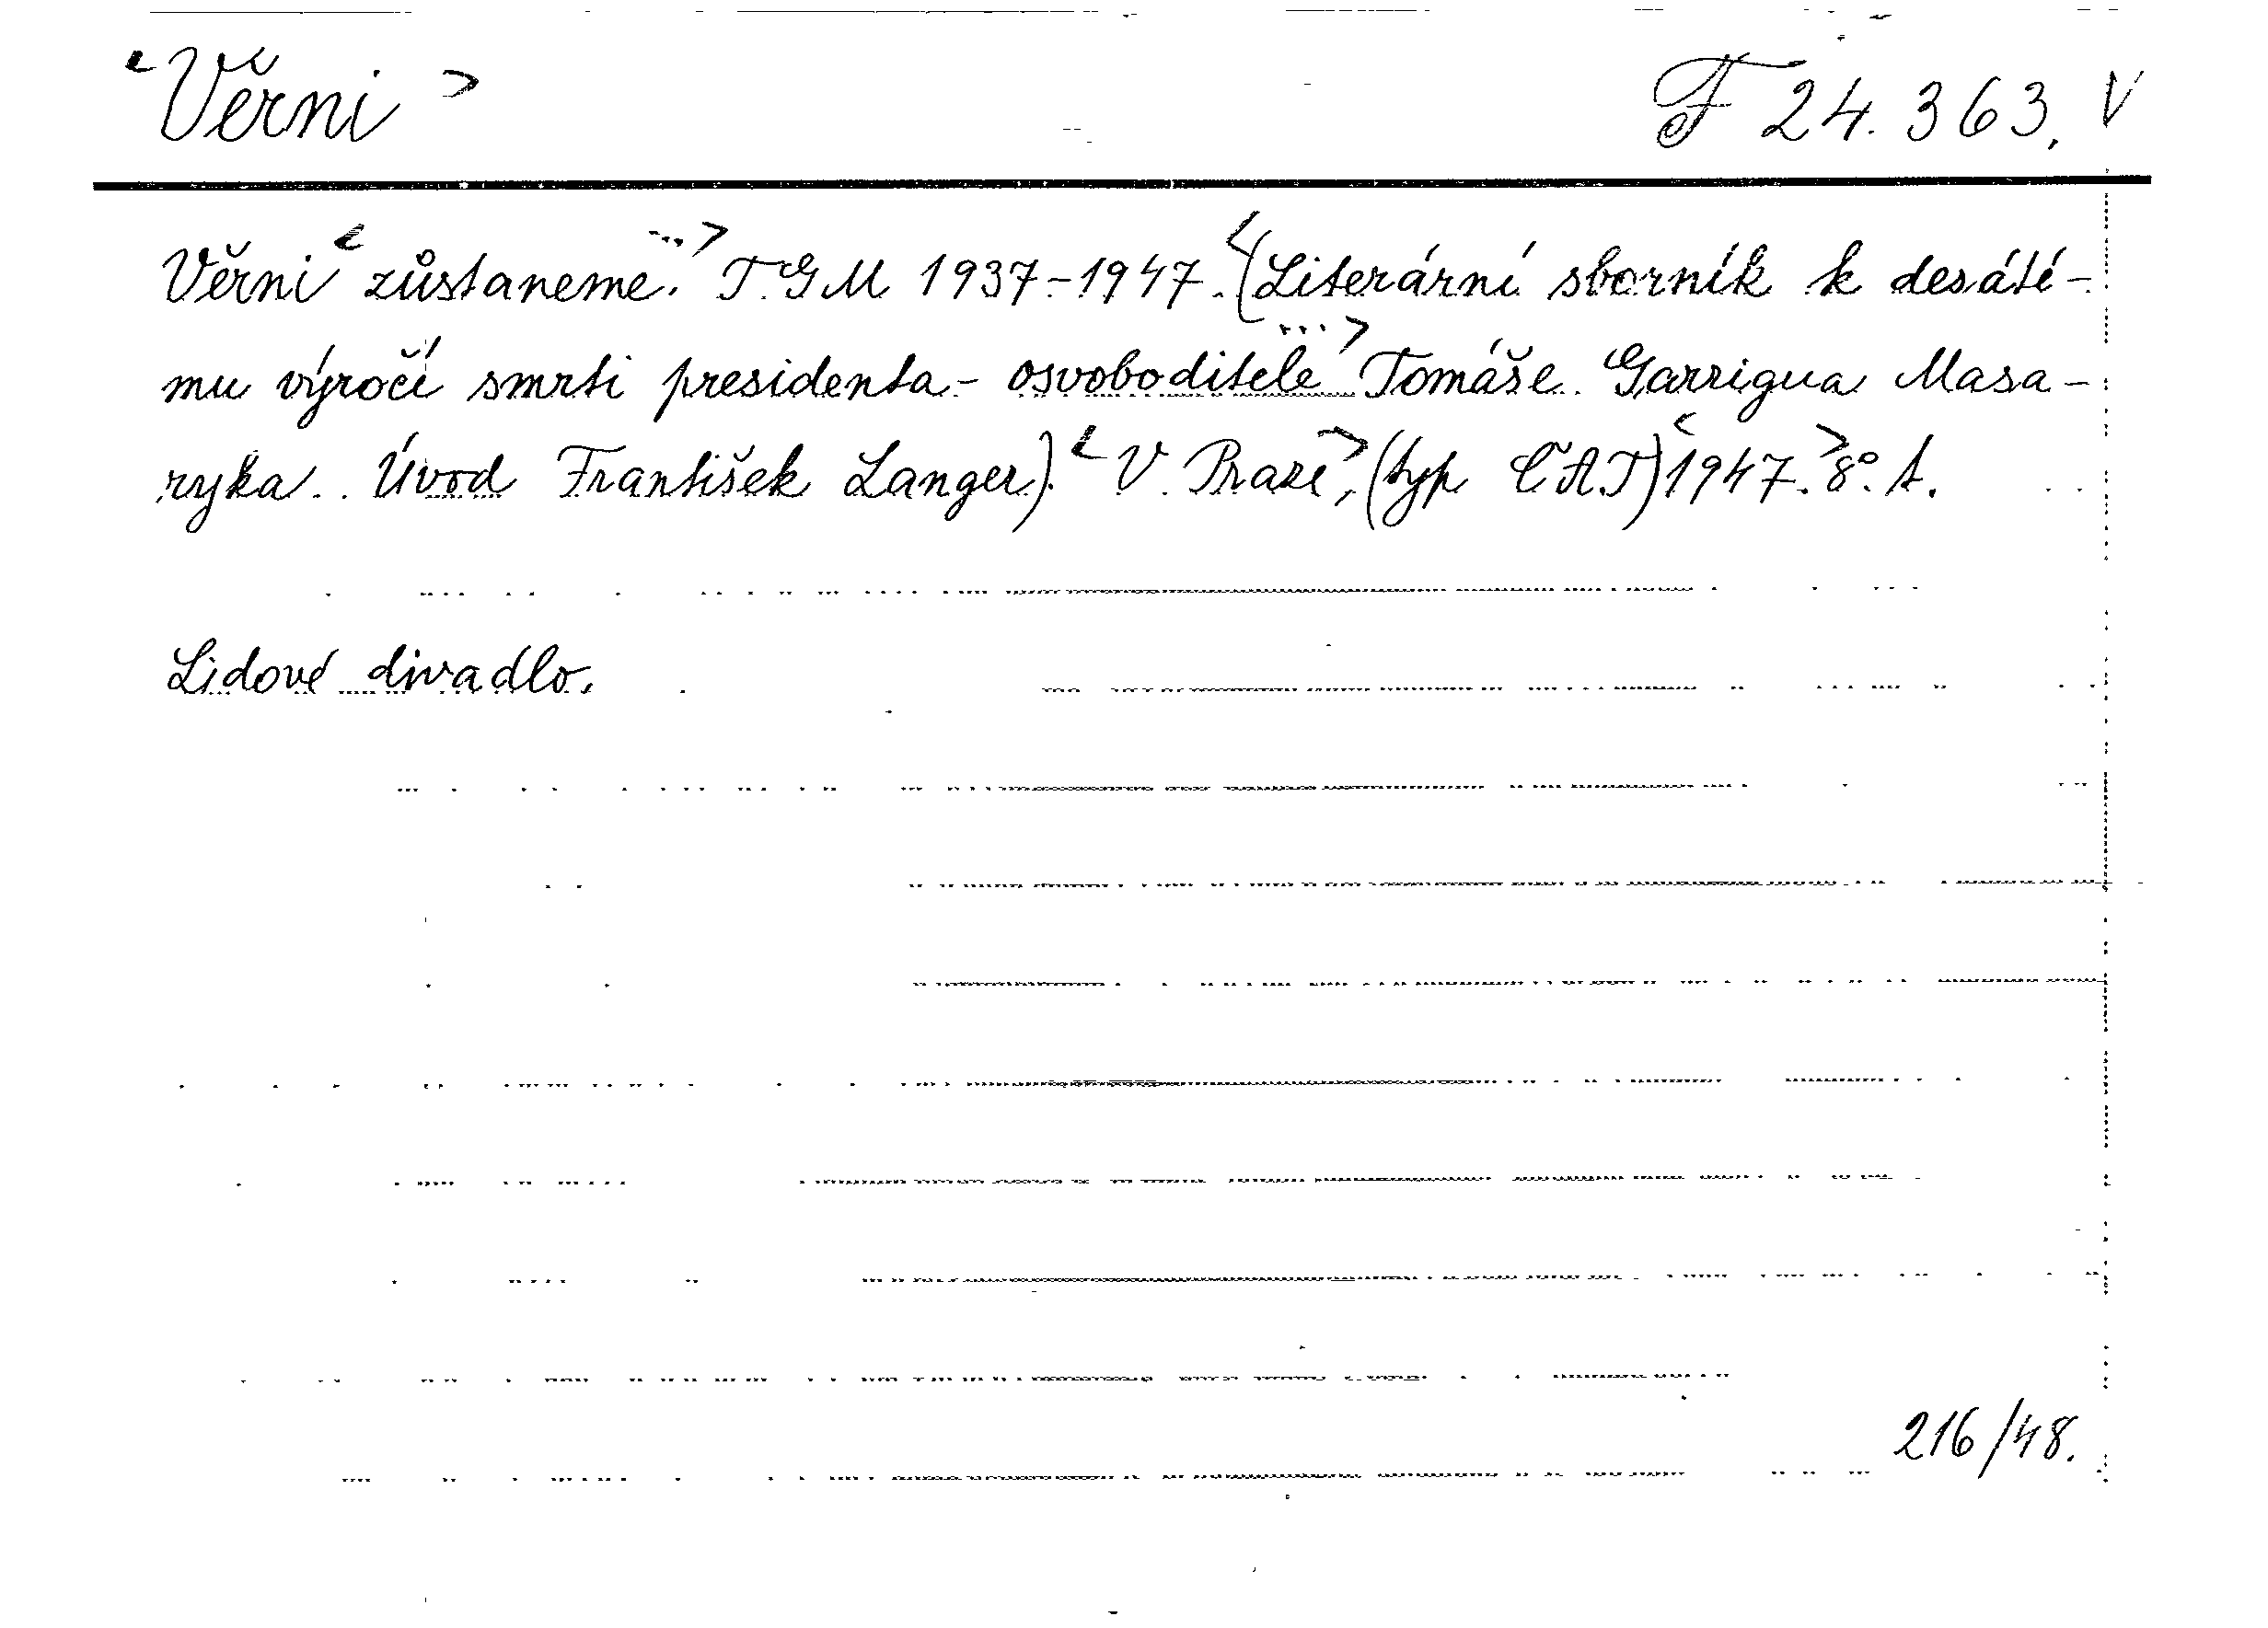 <Věrni> F 24.363. V
Věrni <zůstaneme. ...> T.G.M 1937-1947. <(Literární sborník k desáté-
mu výročí smrti presidenta - osvoboditele ...> Tomáše Garrigua Masa-
ryka. Úvod František Langer). <V Praze>, (typ ČAT) <1947.> 8°. A.
Lidové divadlo.
216/48.